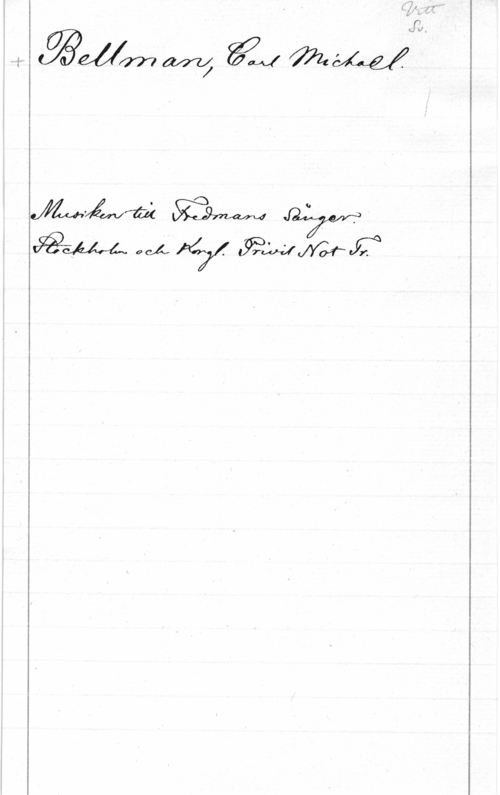 Vitt
Sv.
+ Bellman, Carl Michael.
Musiken till Fredmans Sånger.
Stockholm och Kongl. Privil Not Tr.